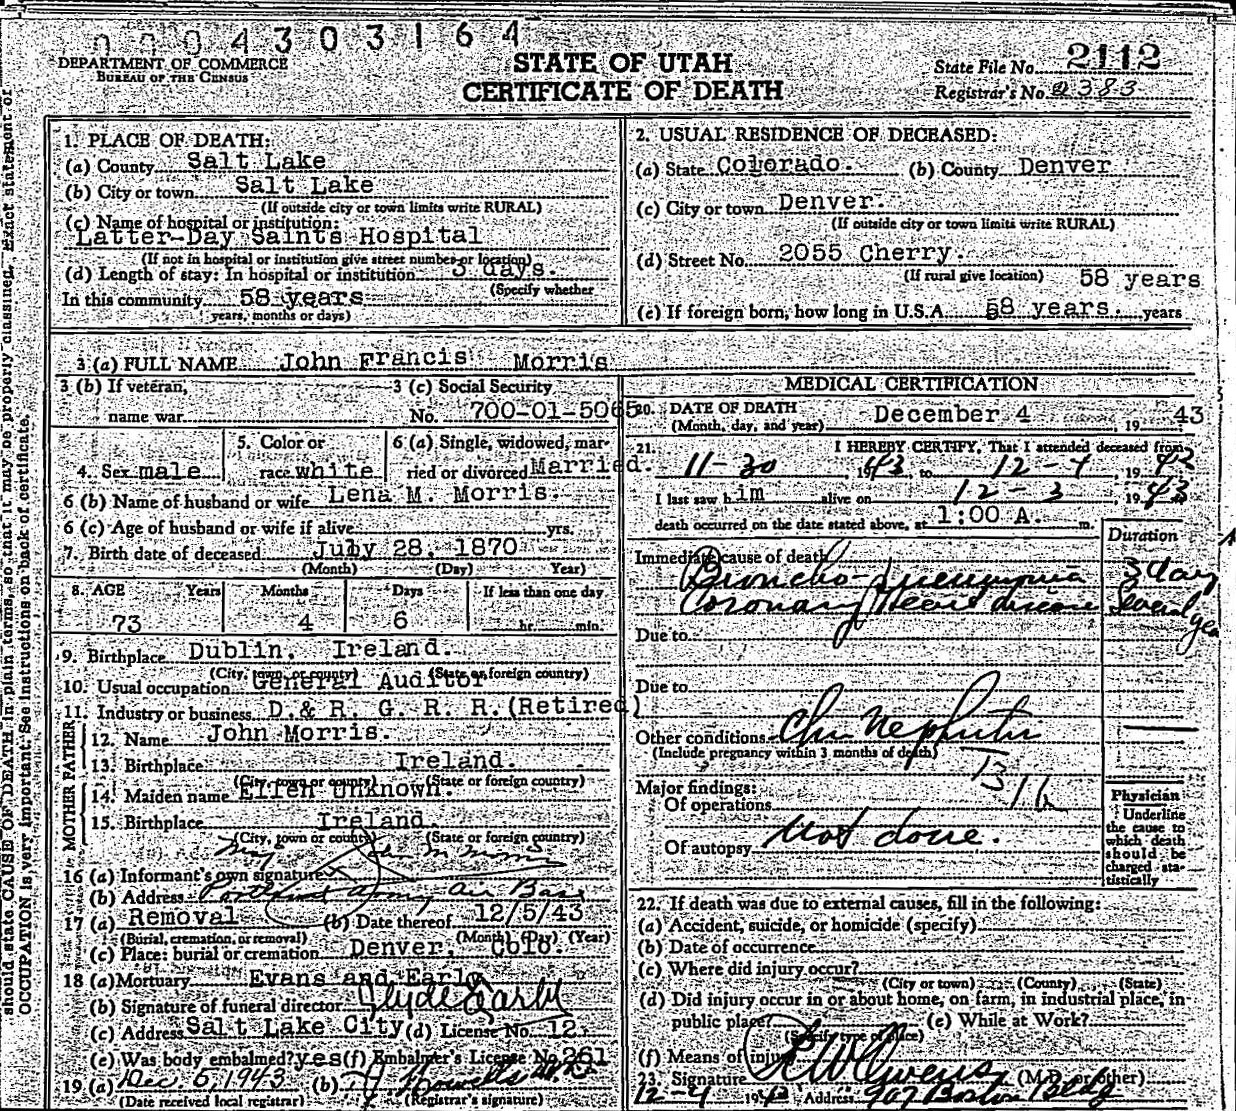 0004303164
DEPARTMENT OF COMMERCE
BUREAU OF THE CENSUS
STATE OF UTAH
CERTIFICATE OF DEATH
State File No. 2112
Registrar's No. 2383
should state CAUSE OF DEATH in plain terms, so that it may be properly classified. Exact statement of
OCCUPATION is very important. See instructions on back of certificate.
1. PLACE OF DEATH:
(a) County Salt Lake
(b) City or town Salt Lake
(If outside city or town limits write RURAL)
(c) Name of hospital or institution:
Latter-Day Saints Hospital
(If not in hospital or institution give street number or location)
(d) Length of stay: In hospital or institution 3 days.
(Specify whether
In this community 58 years
years, months or days)
2. USUAL RESIDENCE OF DECEASED:
(a) State Colorado. (b) County Denver
(c) City or town Denver.
(If outside city or town limits write RURAL)
(d) Street No. 2055 Cherry.
(If rural give location) 58 years
(e) If foreign born, how long in U.S.A. 58 years. years
3 (a) FULL NAME John Francis Morris
3 (b) If veteran,
name war
3 (c) Social Security
No. 700-01-5065
4. Sex male
5. Color or
race white
6 (a) Single, widowed, mar-
ried or divorced Married.
6 (b) Name of husband or wife Lena M. Morris.
6 (c) Age of husband or wife if alive yrs.
7. Birth date of deceased July 28, 1870
(Month) (Day) Year)
8. AGE Years Months Days If less than one day
73 4 6 hr. min.
9. Birthplace Dublin, Ireland.
(City, town or county) (State or foreign country)
10. Usual occupation General Auditor
11. Industry or business D.& R. G. R. R.(Retired)
FATHER
12. Name John Morris.
13. Birthplace Ireland.
(City, town or county) (State or foreign country)
MOTHER
14. Maiden name Ellen Unknown.
15. Birthplace Ireland
(City, town or county) (State or foreign country)
16 (a) Informant's own signature John M. Morris
(b) Address Portland Army Air Base
17 (a) Removal (b) Date thereof 12/5/43
(Burial, cremation, or removal) (Month) (Day) (Year)
(c) Place: burial or cremation Denver, Colo.
18 (a) Mortuary Evans and Early
(b) Signature of funeral director Clyde Early
(c) Address Salt Lake City (d) License No. 12.
(e) Was body embalmed? yes (f) Embalmer's License No. 261
19 (a) Dec. 5, 1943 (b)
(Date received local registrar) (Registrar's signature)
MEDICAL CERTIFICATION
20. DATE OF DEATH December 4, 19 43
(Month, day, and year)
21. I HEREBY CERTIFY, That I attended deceased from
11-30, 1943 to 12-4, 19 43
I last saw him alive on 12-3, 19 43
death occurred on the date stated above, at 1:00 A. m.
Duration
Immediate cause of death
Broncho-pneumonia 3 days
Coronary Heart disease Several yea
Due to
Due to
Other conditions Chr Nephritis
(Include pregnancy within 3 months of death)
Major findings:
Of operations
Of autopsy Not done.
Physician
Underline
the cause to
which death
should be
charged sta-
tistically
22. If death was due to external causes, fill in the following:
(a) Accident, suicide, or homicide (specify)
(b) Date of occurrence
(c) Where did injury occur?
(City or town) (County) (State)
(d) Did injury occur in or about home, on farm, in industrial place, in
public place? (e) While at Work?
(Specify type of place)
(f) Means of injury
23. Signature R W Owens (M.D. or other)
12-4 1943 Address 907 Boston Bldg